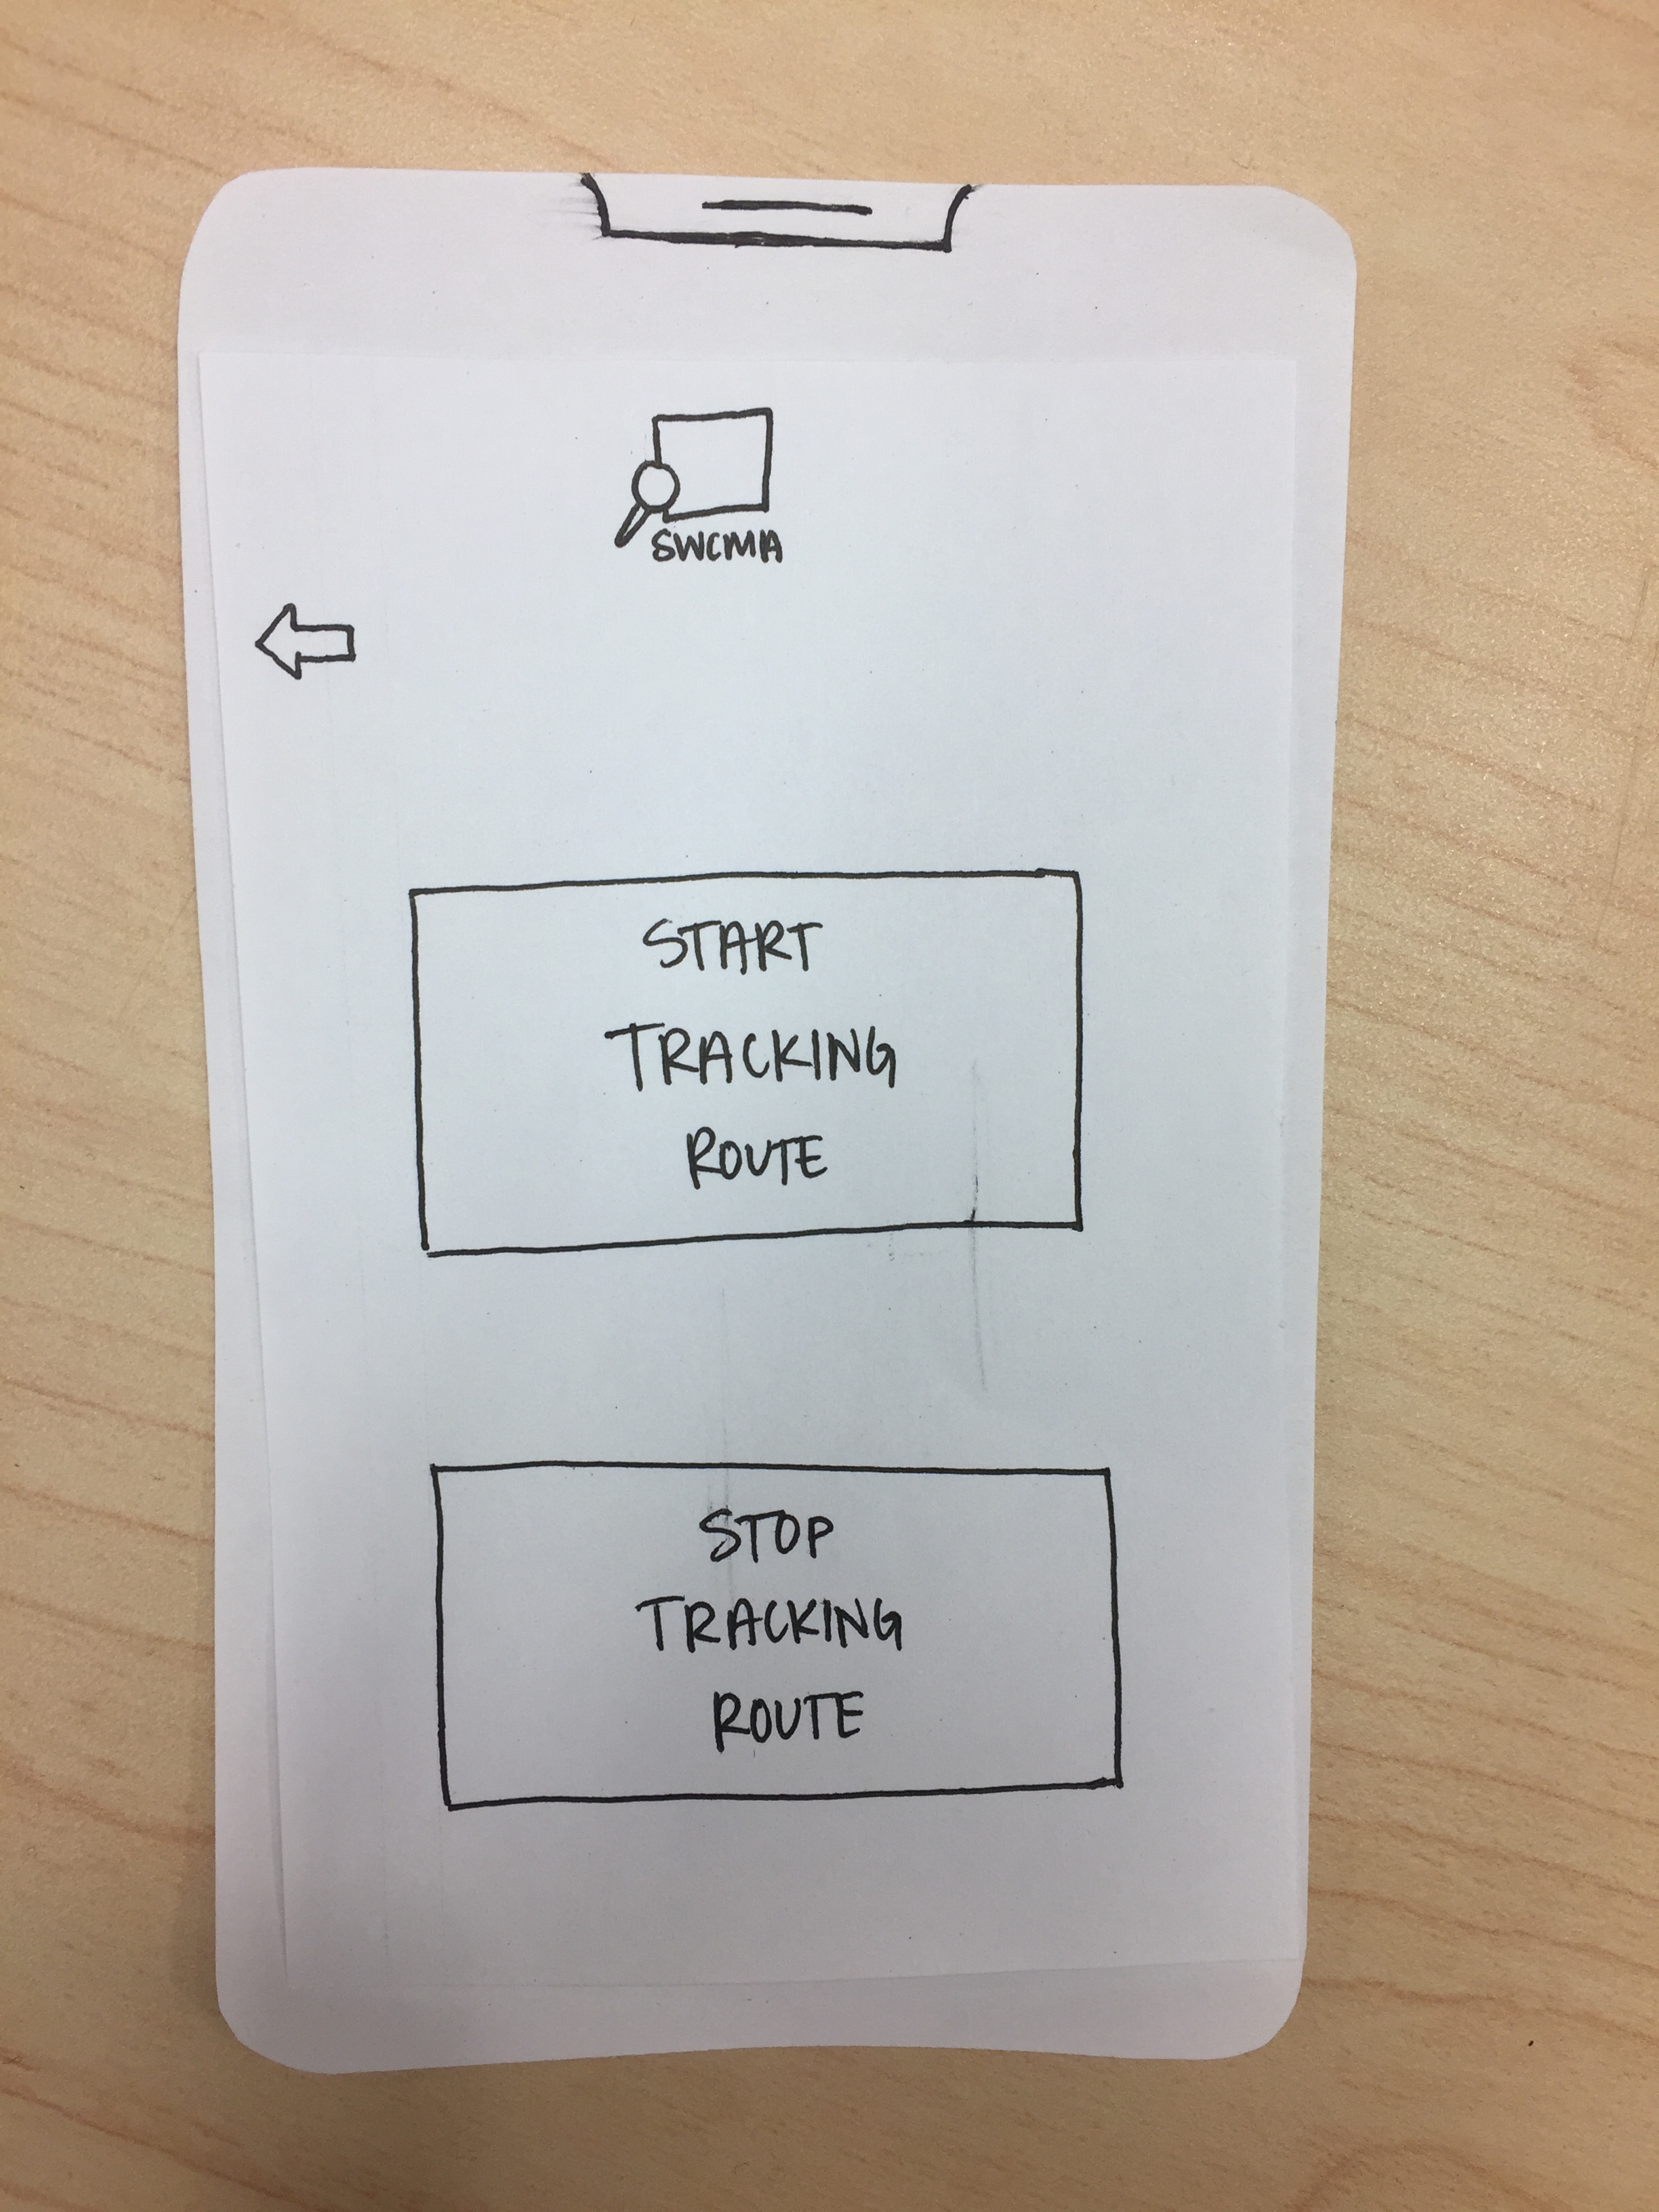 SWCMA
START
TRACKING
ROUTE
STOP
TRACKING
ROUTE